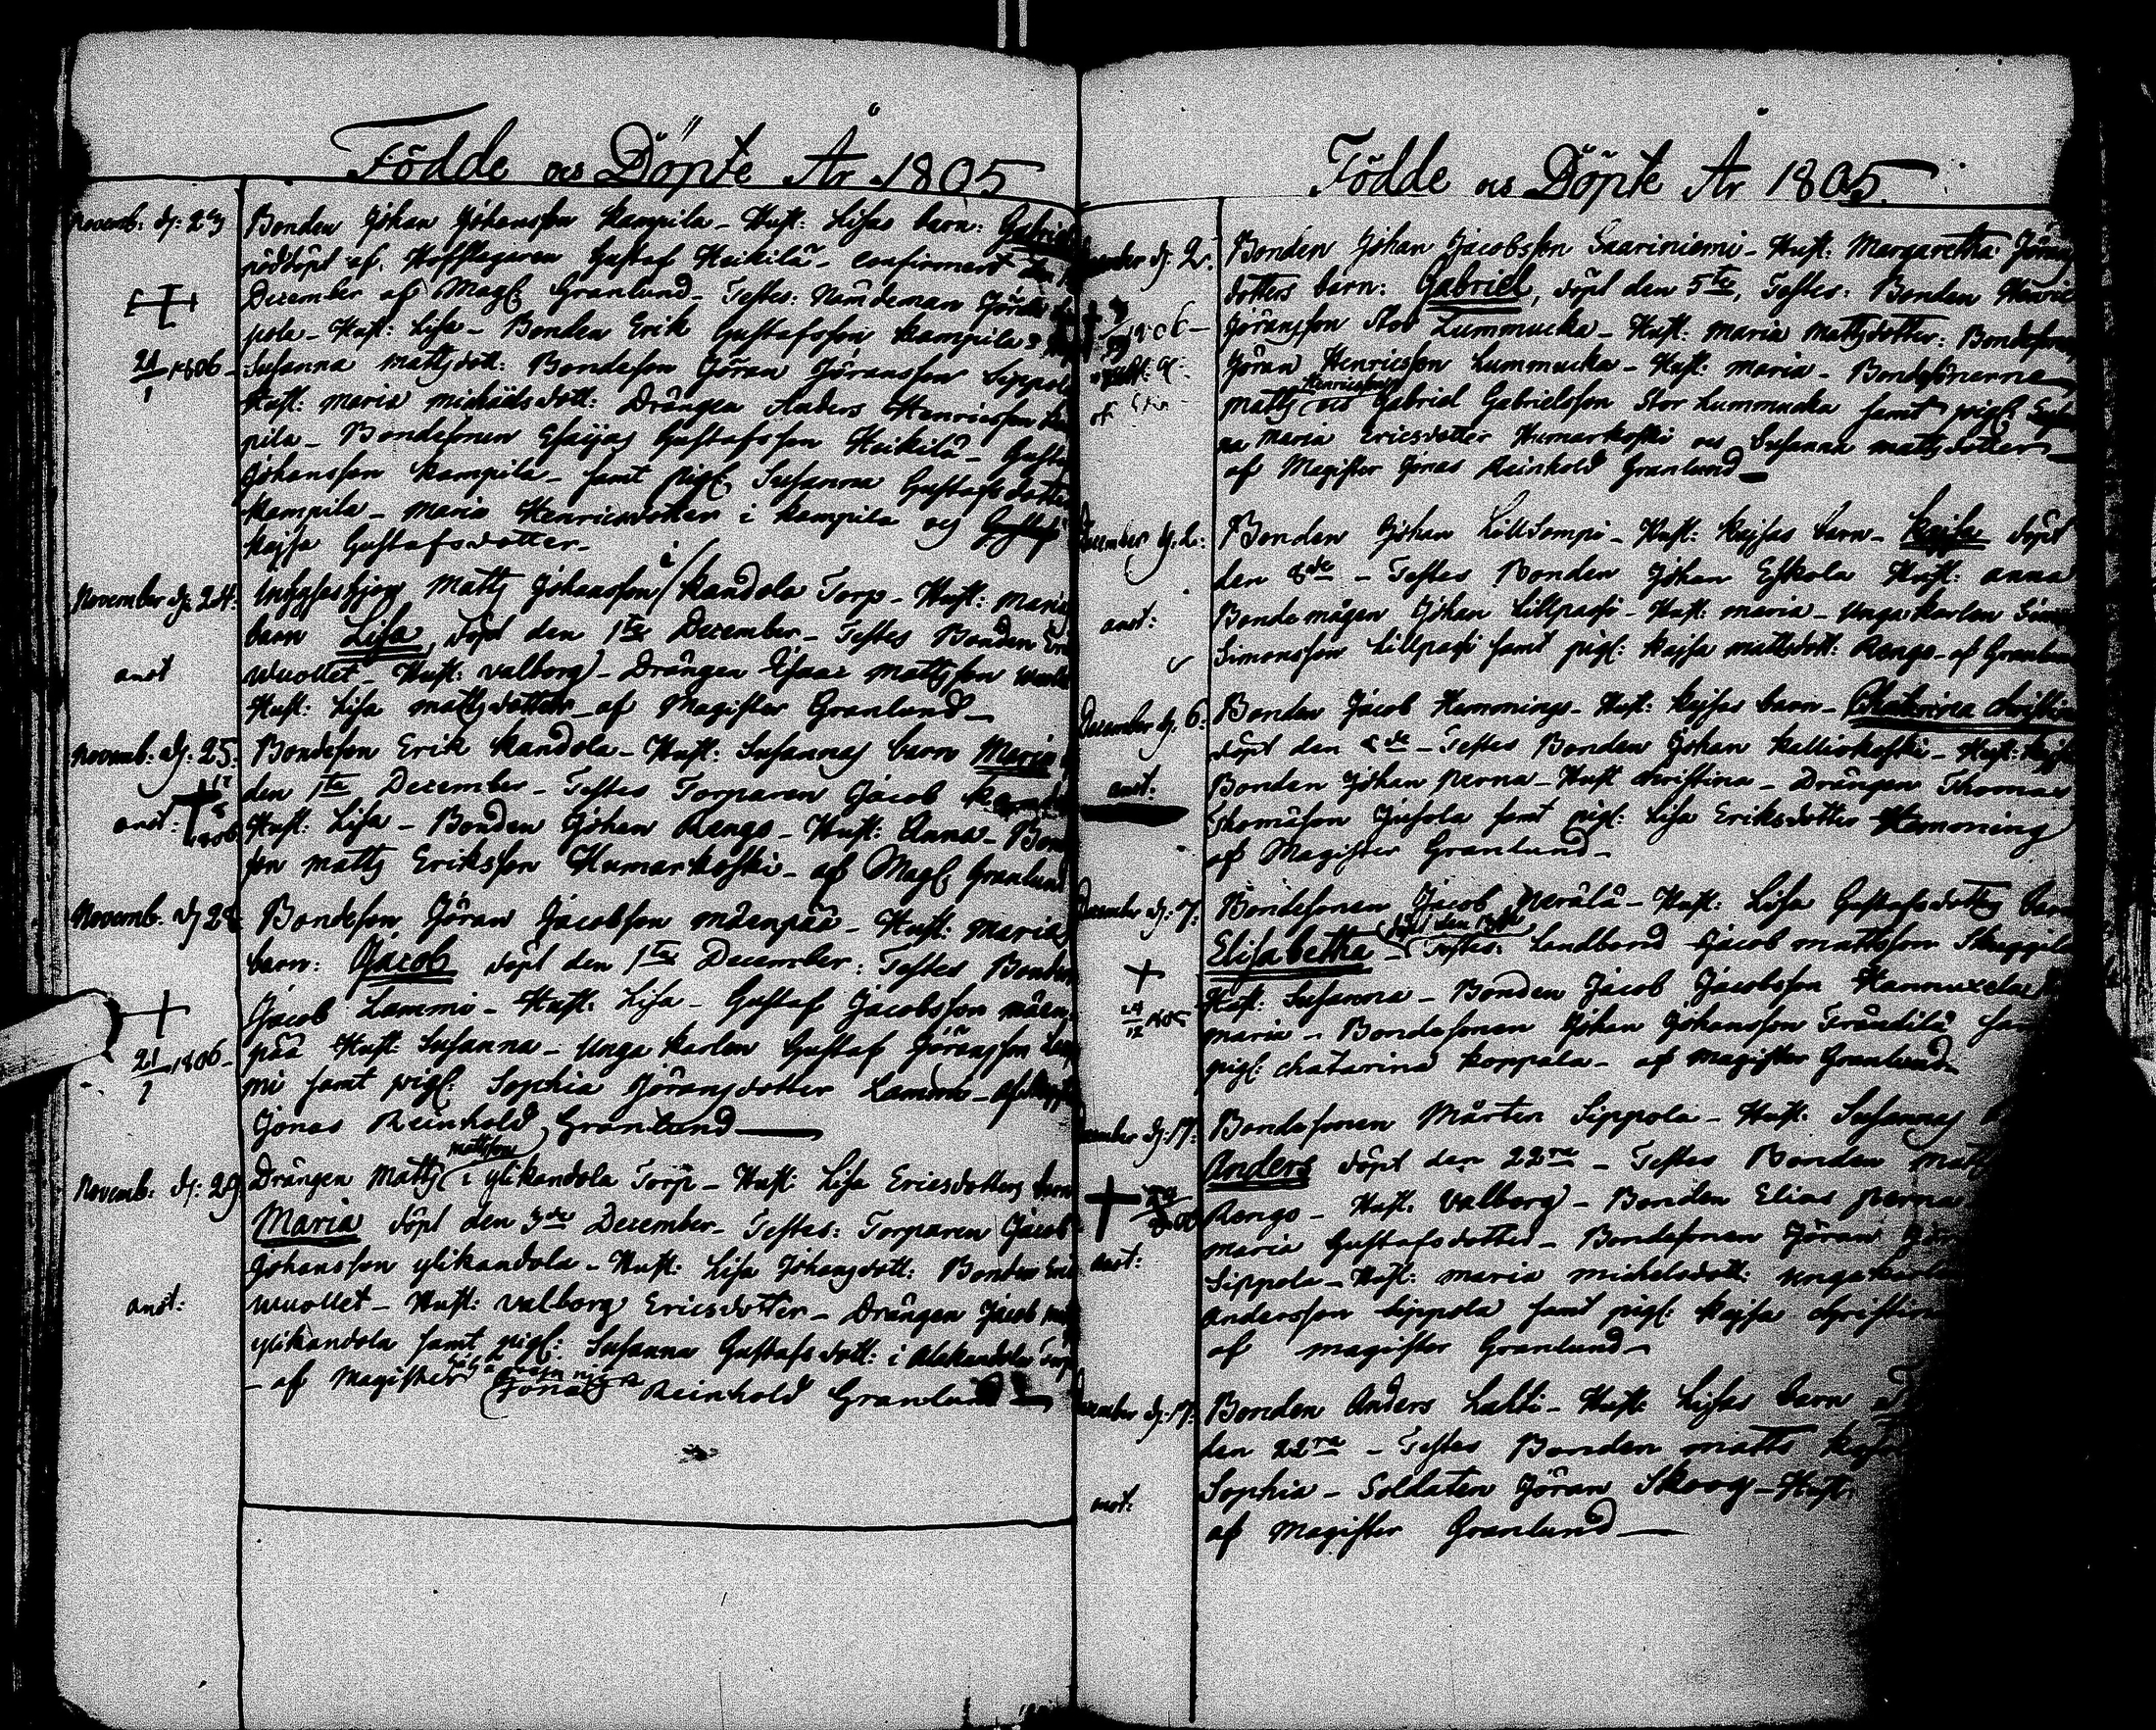 Födde och Döpte År 1805
Novemb: d: 23
Bonden Johan Johansson Kampila - Hust: Lisas barn: Gabriel
nöddöpt af Hofslagaren Gustaf Heikilä - confirmerat
December af Mag: Granlund - Testes: Nämdeman Jöran
pola - Hust: Lisa - Bonden Erik Gustafsson Kampila
21/1 1806 -
Susanna mattsdott: Bondeson Jöran Jöransson Sippola
Hust: maria michelsdott: Drängen Anders Henricsson
pila - Bondesonen Esaijas Gustafsson Heikilä - Gustaf
Johansson Kampila - samt pig: Susanna Gustafsdotter
Kampila - Maria Henricsdotter i Kampila och
Kajsa Gustafsdotter -
November d: 24:
Matts Johansson i Kandola Torp - Hust: Marias
barn Lisa, döpt den 1sta December - Testes Bonden
anot
Wuollet - Hust: Valborg - Drängen Isaac Mattsson
Hust: Lisa mattsdotter - af Magister Granlund -
Novemb: d: 25:
Bondeson Erik Kandola - Hust: Susannas barn Maria
den 1sta December - Testes Torparen Jacob
anot: 1806
Hust: Lisa - Bonden Johan Rengo - Hust: Anna -
son matts Eriksson Humarkoski - af Mag: Granlund
Novemb. d: 28
Bondeson Jöran Jacobsson mäenpää - Hust: Marias
barn: Jacob döpt den 1sta December: Testes Bonden
Jacob Lammi - Hust: Lisa - Gustaf Jacobsson mäen
pää Hust: Susanna - Unga Karlen Gustaf Jöransson Lam
21/1 1806 -
mi samt pig: Sophia Jöransdotter Lammi - af
Jonas Reinhold Granlund
Novemb: d: 29
Drängen Matts mattsson i ylikandola Torp - Hust: Lisa Ericsdotters barn
Maria döpt den 3de December - Testes: Torparen Jacob
Johansson ylikandola - Hust: Lisa Johansdott: Bonden Eric
anot:
Wuollet - Hust: Valborg Ericsdotter - Drängen Jacob
ylikandola samt pig: Susanna Gustafsdott: i Alekandola Torp
- af Magister Jonas Reinhold Granlund
Födde och Döpte År 1805.
December d: 2:
Bonden Johan Jacobsson Saariniemi - Hust: Margaretha Jörans
dotters barn: Gabriel, döpt den 5te, Testes: Bonden Henric
1806 -
Jöransson Stor Lummucka - Hust: Maria Mattsdotter: Bondeson
Jöran Henricsson Lummucka - Hust: maria - Bondsönerne
matts Henricsson och Gabriel Gabrielsson Stor Lummucka samt pig:
na Maria Ericsdotter Humarkoski och Susanna mattsdotter
af Magister Jonas Reinhold Granlund
December d: 2:
Bonden Johan Lillsompi - Hust: Kajsas barn - Kajsa döpt
den 8de - Testes Bonden Johan Eskola Hust: anna
anot:
Bondemågen Johan Lillpasi - Hust: maria - Unga karlen
Simonsson Lillpasi samt pig: Kajsa mattsdott: Rengo - af Granlund
December d: 6:
Bonden Jacob Hemmings - Hust: Kajsas barn - Chatarina Christina
döpt den 8de - Testes Bonden Johan Kalliokoski - Hust: Kajsa
anot:
Bonden Johan Perna - Hust Christina - Drängen Thomas
Thomasson Jusola samt pig: Lisa Eriksdotter Hemming
af Magister Granlund -
December d: 7:
Bondesonen Jacob Nerälä - Hust: Lisa Gustafsdotters barn
Elisabetha - Testes: Landbond Jacob mattsson
Hust: Susanna - Bonden Jacob Jacobsson Hannuxela
24/12 1805
maria - Bondesonen Johan Johansson Trändilä
pig: Chatarina Korpala - af magister Granlund
December d: 17:
Bondesonen Mårten Sippola - Hust: Susannas
Anders döpt den 22ra - Testes Bonden matts
Rengo - Hust: Valborg - Bonden Elias Perna
anot:
maria Gustafsdotter - Bondesonen Jöran
Sippola - Hust: maria michelsdott: unga karlen
Andersson Sippola samt pig: Kajsa Christina
af magister Granlund -
December d: 17:
Bonden Anders Labbi - Hust: Lisas barn
den 22ra - Testes Bonden matts
anot:
Sophia - Soldaten Jöran Skoog - Hust:
af Magister Granlund